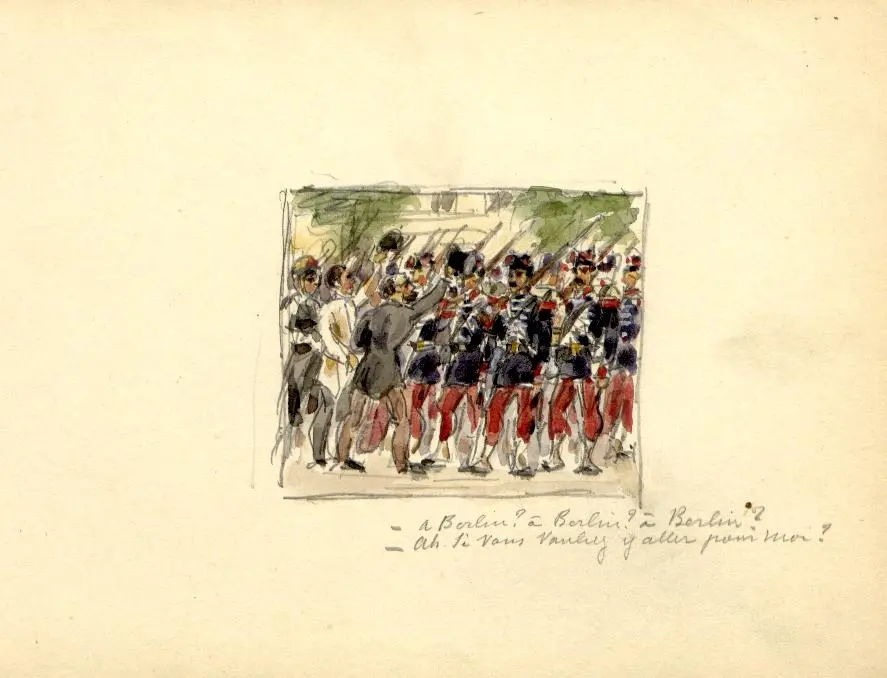 - a Berlin? à Berlin? à Berlin?
- Ah. Si vous vouliez y aller pour moi?